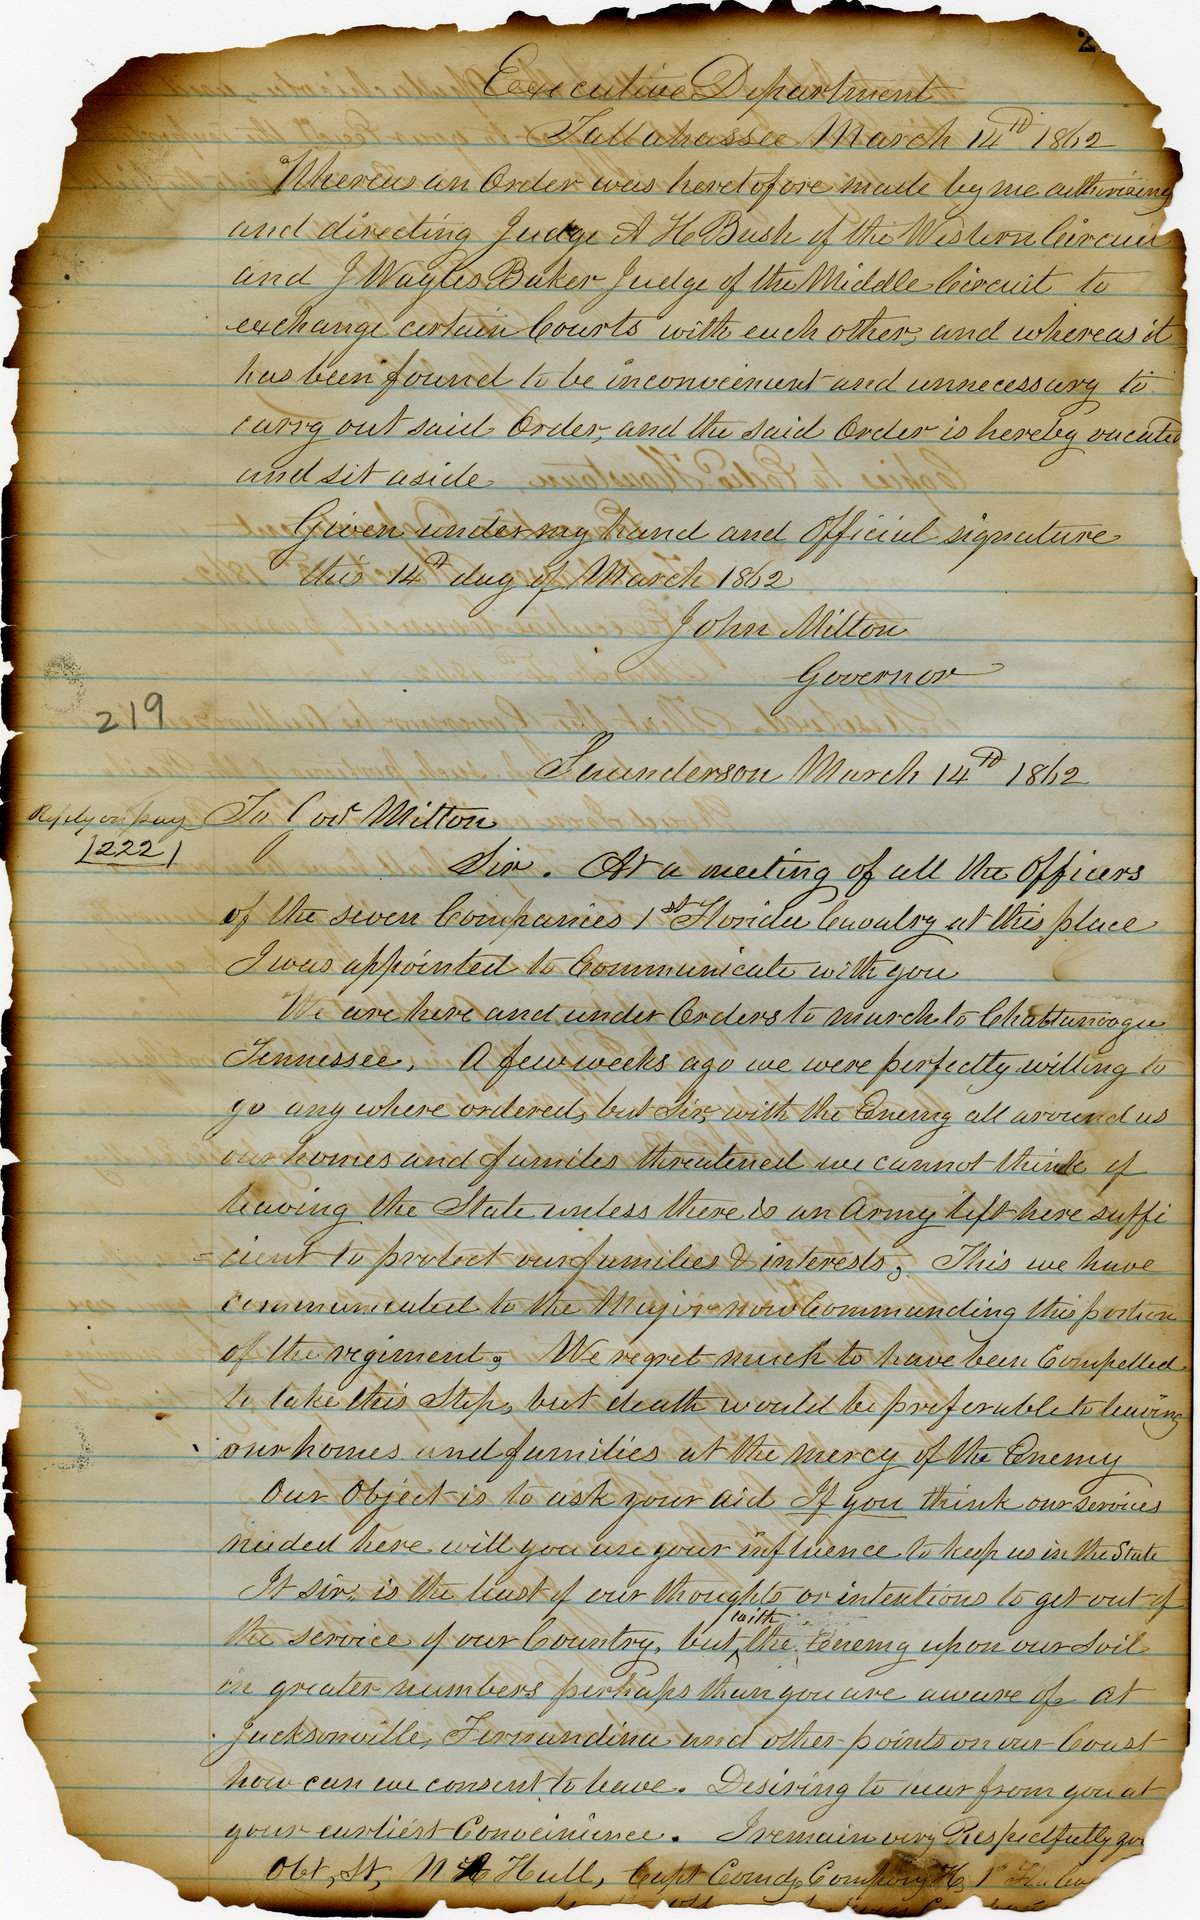 2
Executive Department
Tallahassee March 14th 1862
Whereas an Order was heretofore made by me authorising
and directing Judge A H Bush of the Western Circuit
and J Wayles Baker Judge of the Middle Circuit to
exchange certain Courts with each other, and whereas it
has been found to be inconveinient and unnecessary to
carry out said Order, and the said Order is hereby vacated
and set aside
Given under my hand and Official signature
this 14th day of March 1862
John Milton
Governor
219
Saunderson March 14th 1862
Reply on page
222
To Govr Milton
Sir. At a meeting of all the Officers
of the seven Companies 1st Florida Cavalry at this place
I was appointed to Communicate with you
We are here and under Orders to march to Chattanooga
Tennessee. A few weeks ago we were perfectly willing to
go any where ordered, but Sir, with the Enemy all around us
our homes and familes threatened we cannot think of
leaving the State unless there is an Army left here suffi
=cient to protect our families & interests, This we have
communicated to the Major now Commanding this portion
of the regiment, We regret much to have been Compelled
to take this Step, but death would be preferable to leaving
our homes and families at the mercy of the Enemy
Our Object is to ask your aid If you think our services
needed here will you use your influence to keep us in the State
It sir, is the least of our thoughts or intentions to get out of
the service of our Country, but with the Enemy upon our Soil
in greater numbers perhaps than you are aware of, at
Jacksonville, Fernandina and other points on our Coast
how can we consent to leave. Desiring to hear from you at
your earliest Conveinience. I remain very Respectfully
Obt, St, N H Hull, Capt Comdg Company H, 1st Fla